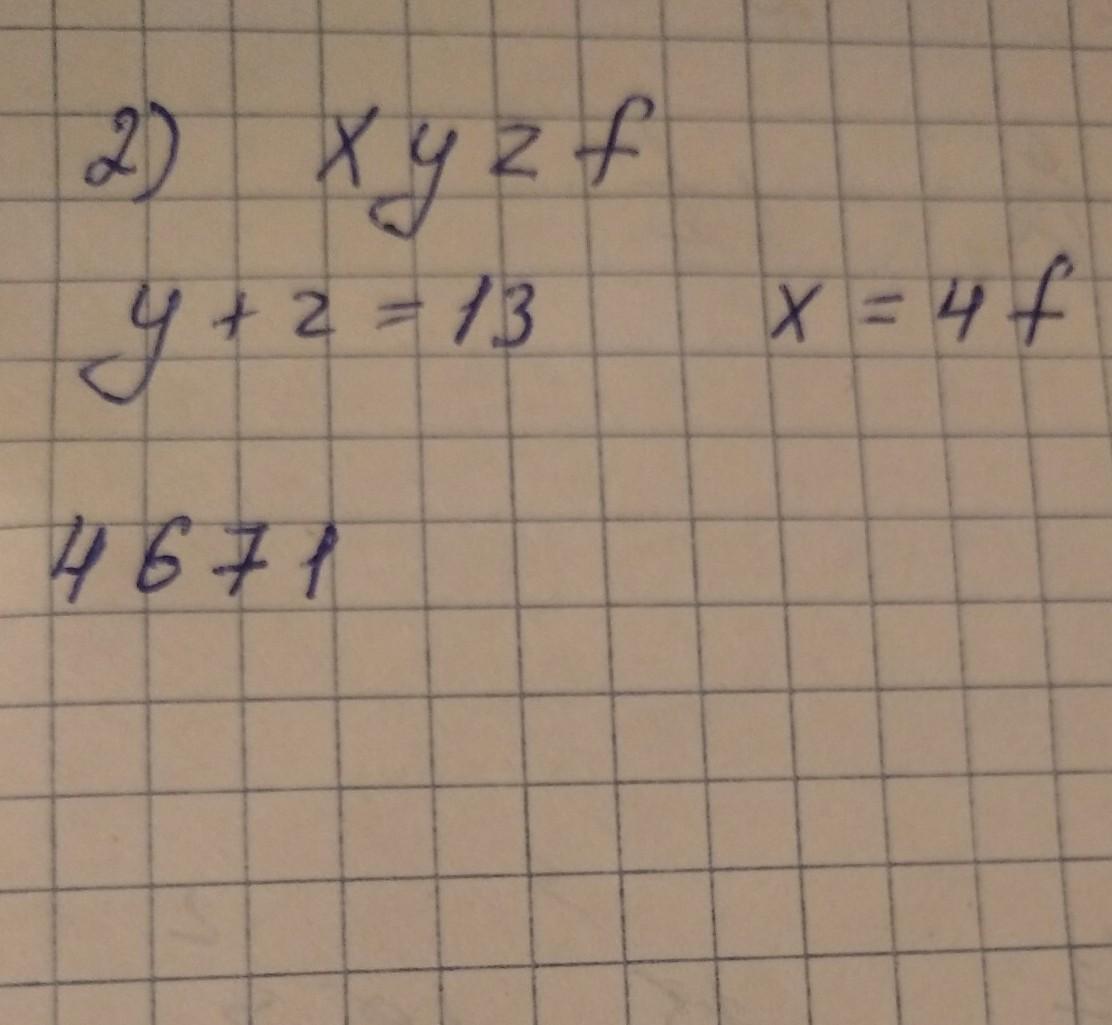 2) x y z f
y + z = 13 x = 4 f
4 6 7 1